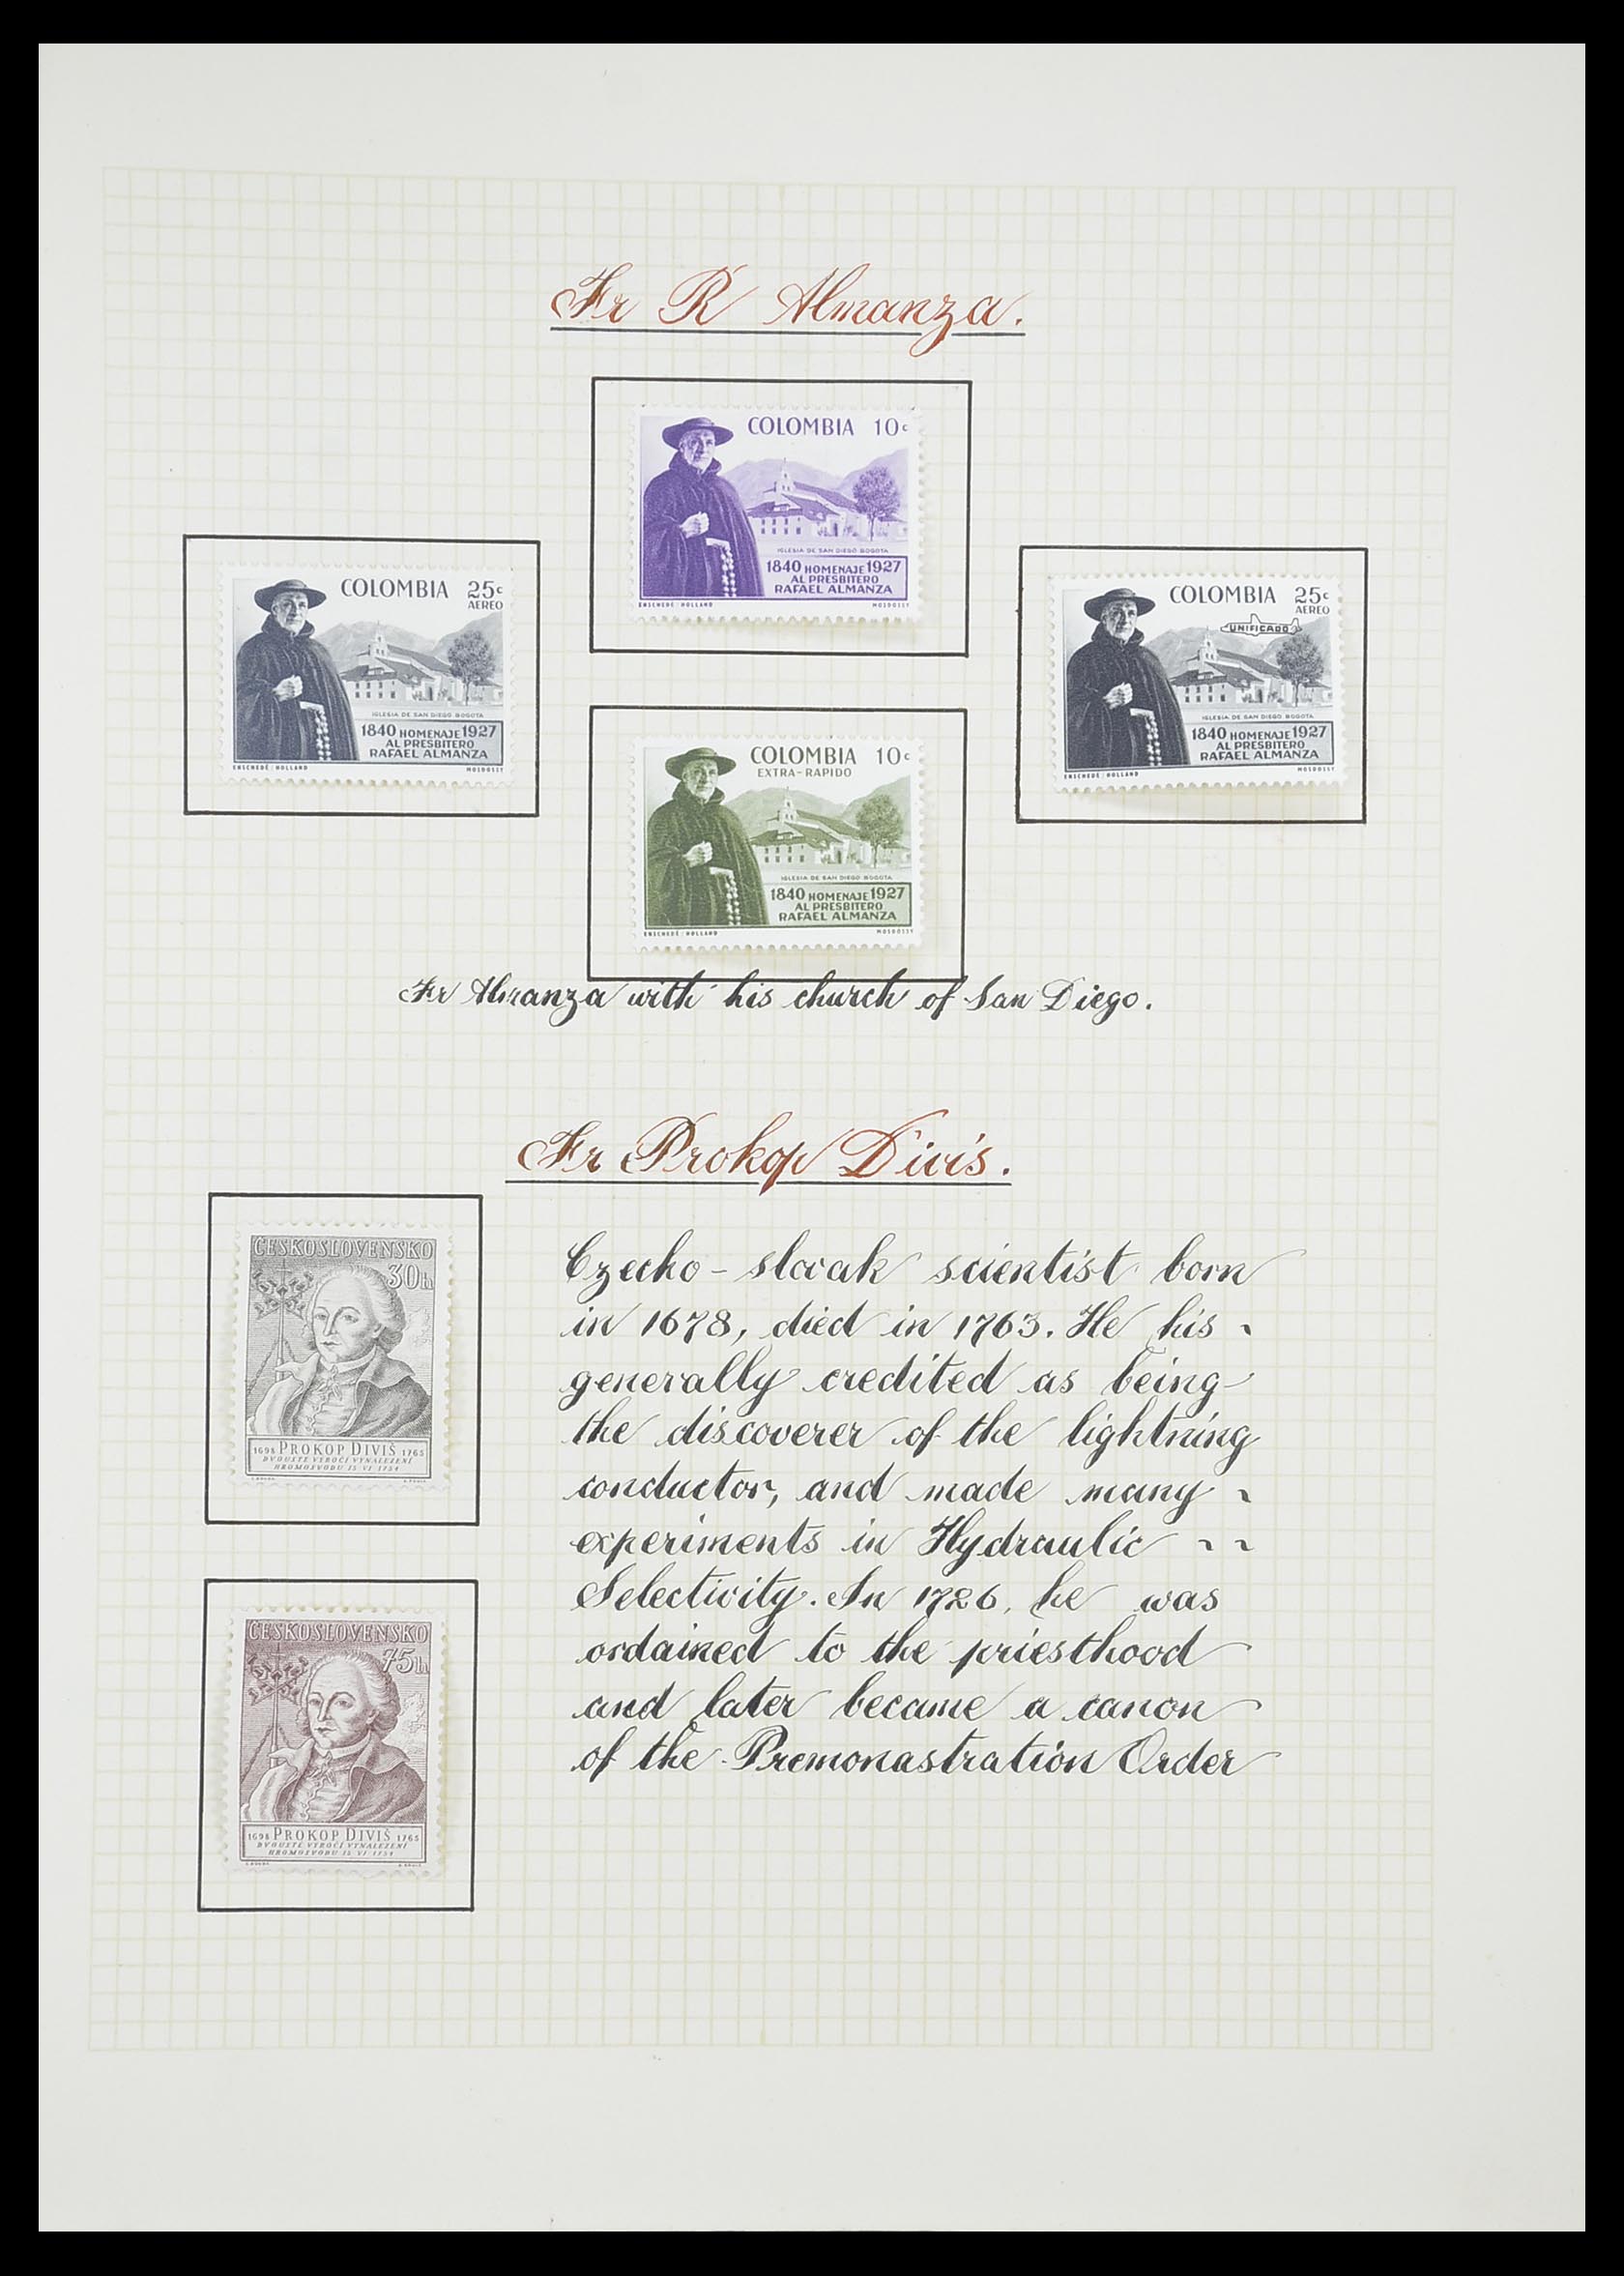 Fr R Almanza.
COLOMBIA 10c
IGLESIA DE SAN DIEGO BOGOTA
1840 HOMENAJE 1927
AL PRESBITERO
RAFAEL ALMANZA
ENSCHEDÉ/HOLLAND MOSDÓSSY
COLOMBIA 25c
AEREO
IGLESIA DE SAN DIEGO BOGOTA
1840 HOMENAJE 1927
AL PRESBITERO
RAFAEL ALMANZA
ENSCHEDÉ/HOLLAND MOSDÓSSY
COLOMBIA 25c
AEREO
UNIFICADO
IGLESIA DE SAN DIEGO BOGOTA
1840 HOMENAJE 1927
AL PRESBITERO
RAFAEL ALMANZA
ENSCHEDÉ/HOLLAND MOSDÓSSY
COLOMBIA 10c
EXTRA-RAPIDO
IGLESIA DE SAN DIEGO BOGOTA
1840 HOMENAJE 1927
AL PRESBITERO
RAFAEL ALMANZA
ENSCHEDÉ/HOLLAND MOSDÓSSY
Fr Almanza with his church of San Diego.
Fr Prokop Divis.
ČESKOSLOVENSKO
30h
1698 PROKOP DIVIŠ 1765
DVOUSTÉ VÝROČÍ VYNALEZENÍ
HROMOSVODU 15.VI.1954
ČESKOSLOVENSKO
75h
1698 PROKOP DIVIŠ 1765
DVOUSTÉ VÝROČÍ VYNALEZENÍ
HROMOSVODU 15.VI.1954
Czecho-slovak scientist born
in 1678, died in 1763. He his
generally credited as being
the discoverer of the lightning
conductor, and made many
experiments in Hydraulic
Selectivity. In 1726, he was
ordained to the priesthood
and later became a canon
of the Premonastration Order